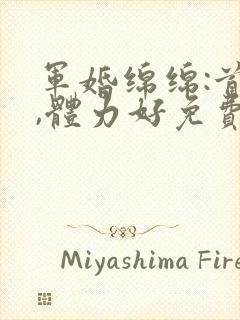 軍婚绵绵:首
,體力好免費
Miyashima Fire